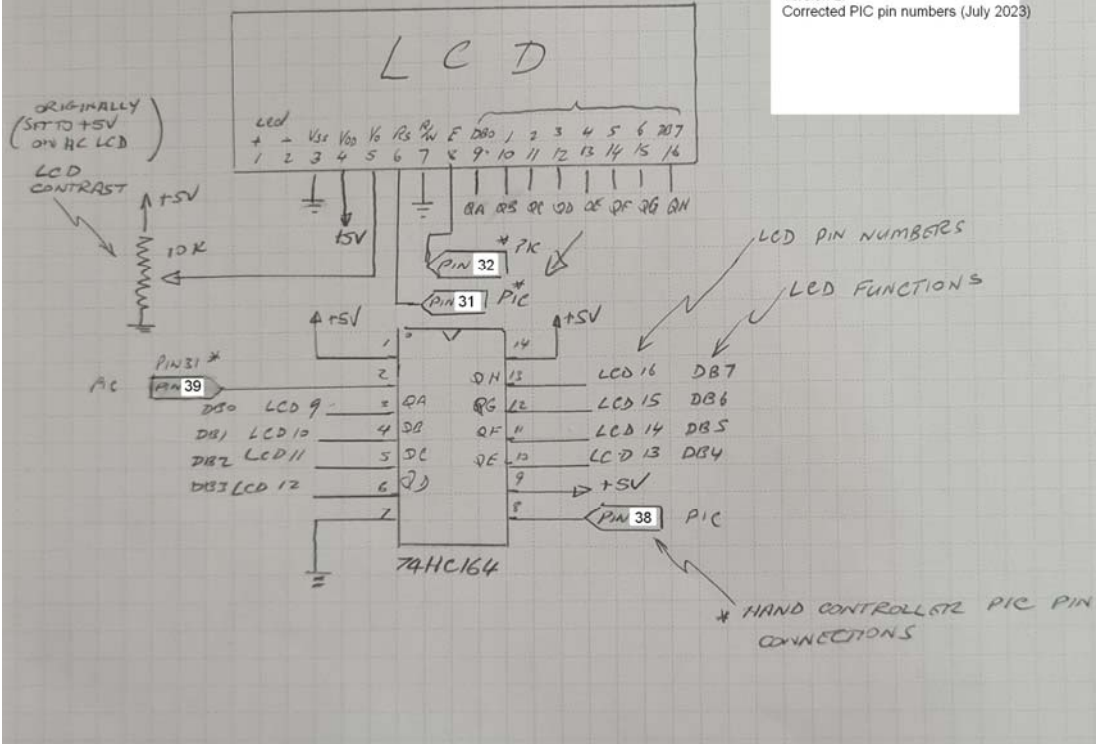 Corrected PIC pin numbers (July 2023)
LCD
ORIGINALLY
(SET TO +5V
ON HC LCD)
LCD
CONTRAST
+5V
10K
Led
+ - VSS VDD Vo RS R/W E DB0 1 2 3 4 5 6 DB7
1 2 3 4 5 6 7 8 9 10 11 12 13 14 15 16
QA QB QC QD QE QF QG QH
+5V
* PIC
PIN 32
PIN 31 PIC *
LCD PIN NUMBERS
LCD FUNCTIONS
+5V
+5V
1 14
PIN31 *
PIC PIN 39 2
QH 13 LCD 16 DB7
DB0 LCD 9 3 QA
QG 12 LCD 15 DB6
DB1 LCD 10 4 QB
QF 11 LCD 14 DB5
DB2 LCD 11 5 QC
QE 10 LCD 13 DB4
DB3 LCD 12 6 QD
9 +5V
7 8 PIN 38 PIC
74HC164
* HAND CONTROLLER PIC PIN
CONNECTIONS